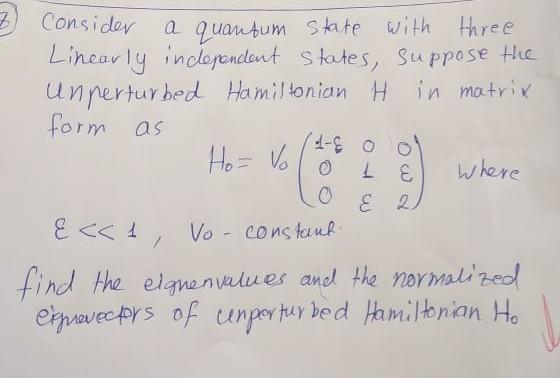 2) Consider a quantum state with three
Linearly independent states, suppose the
unperturbed Hamiltonian H in matrix
form as
H₀ = V₀ (1-ε 0 0
0 1 ε
0 ε 2) where
ε << 1, V₀ - constant.
find the eignenvalues and the normalized
eignevectors of unperturbed Hamiltonian H₀